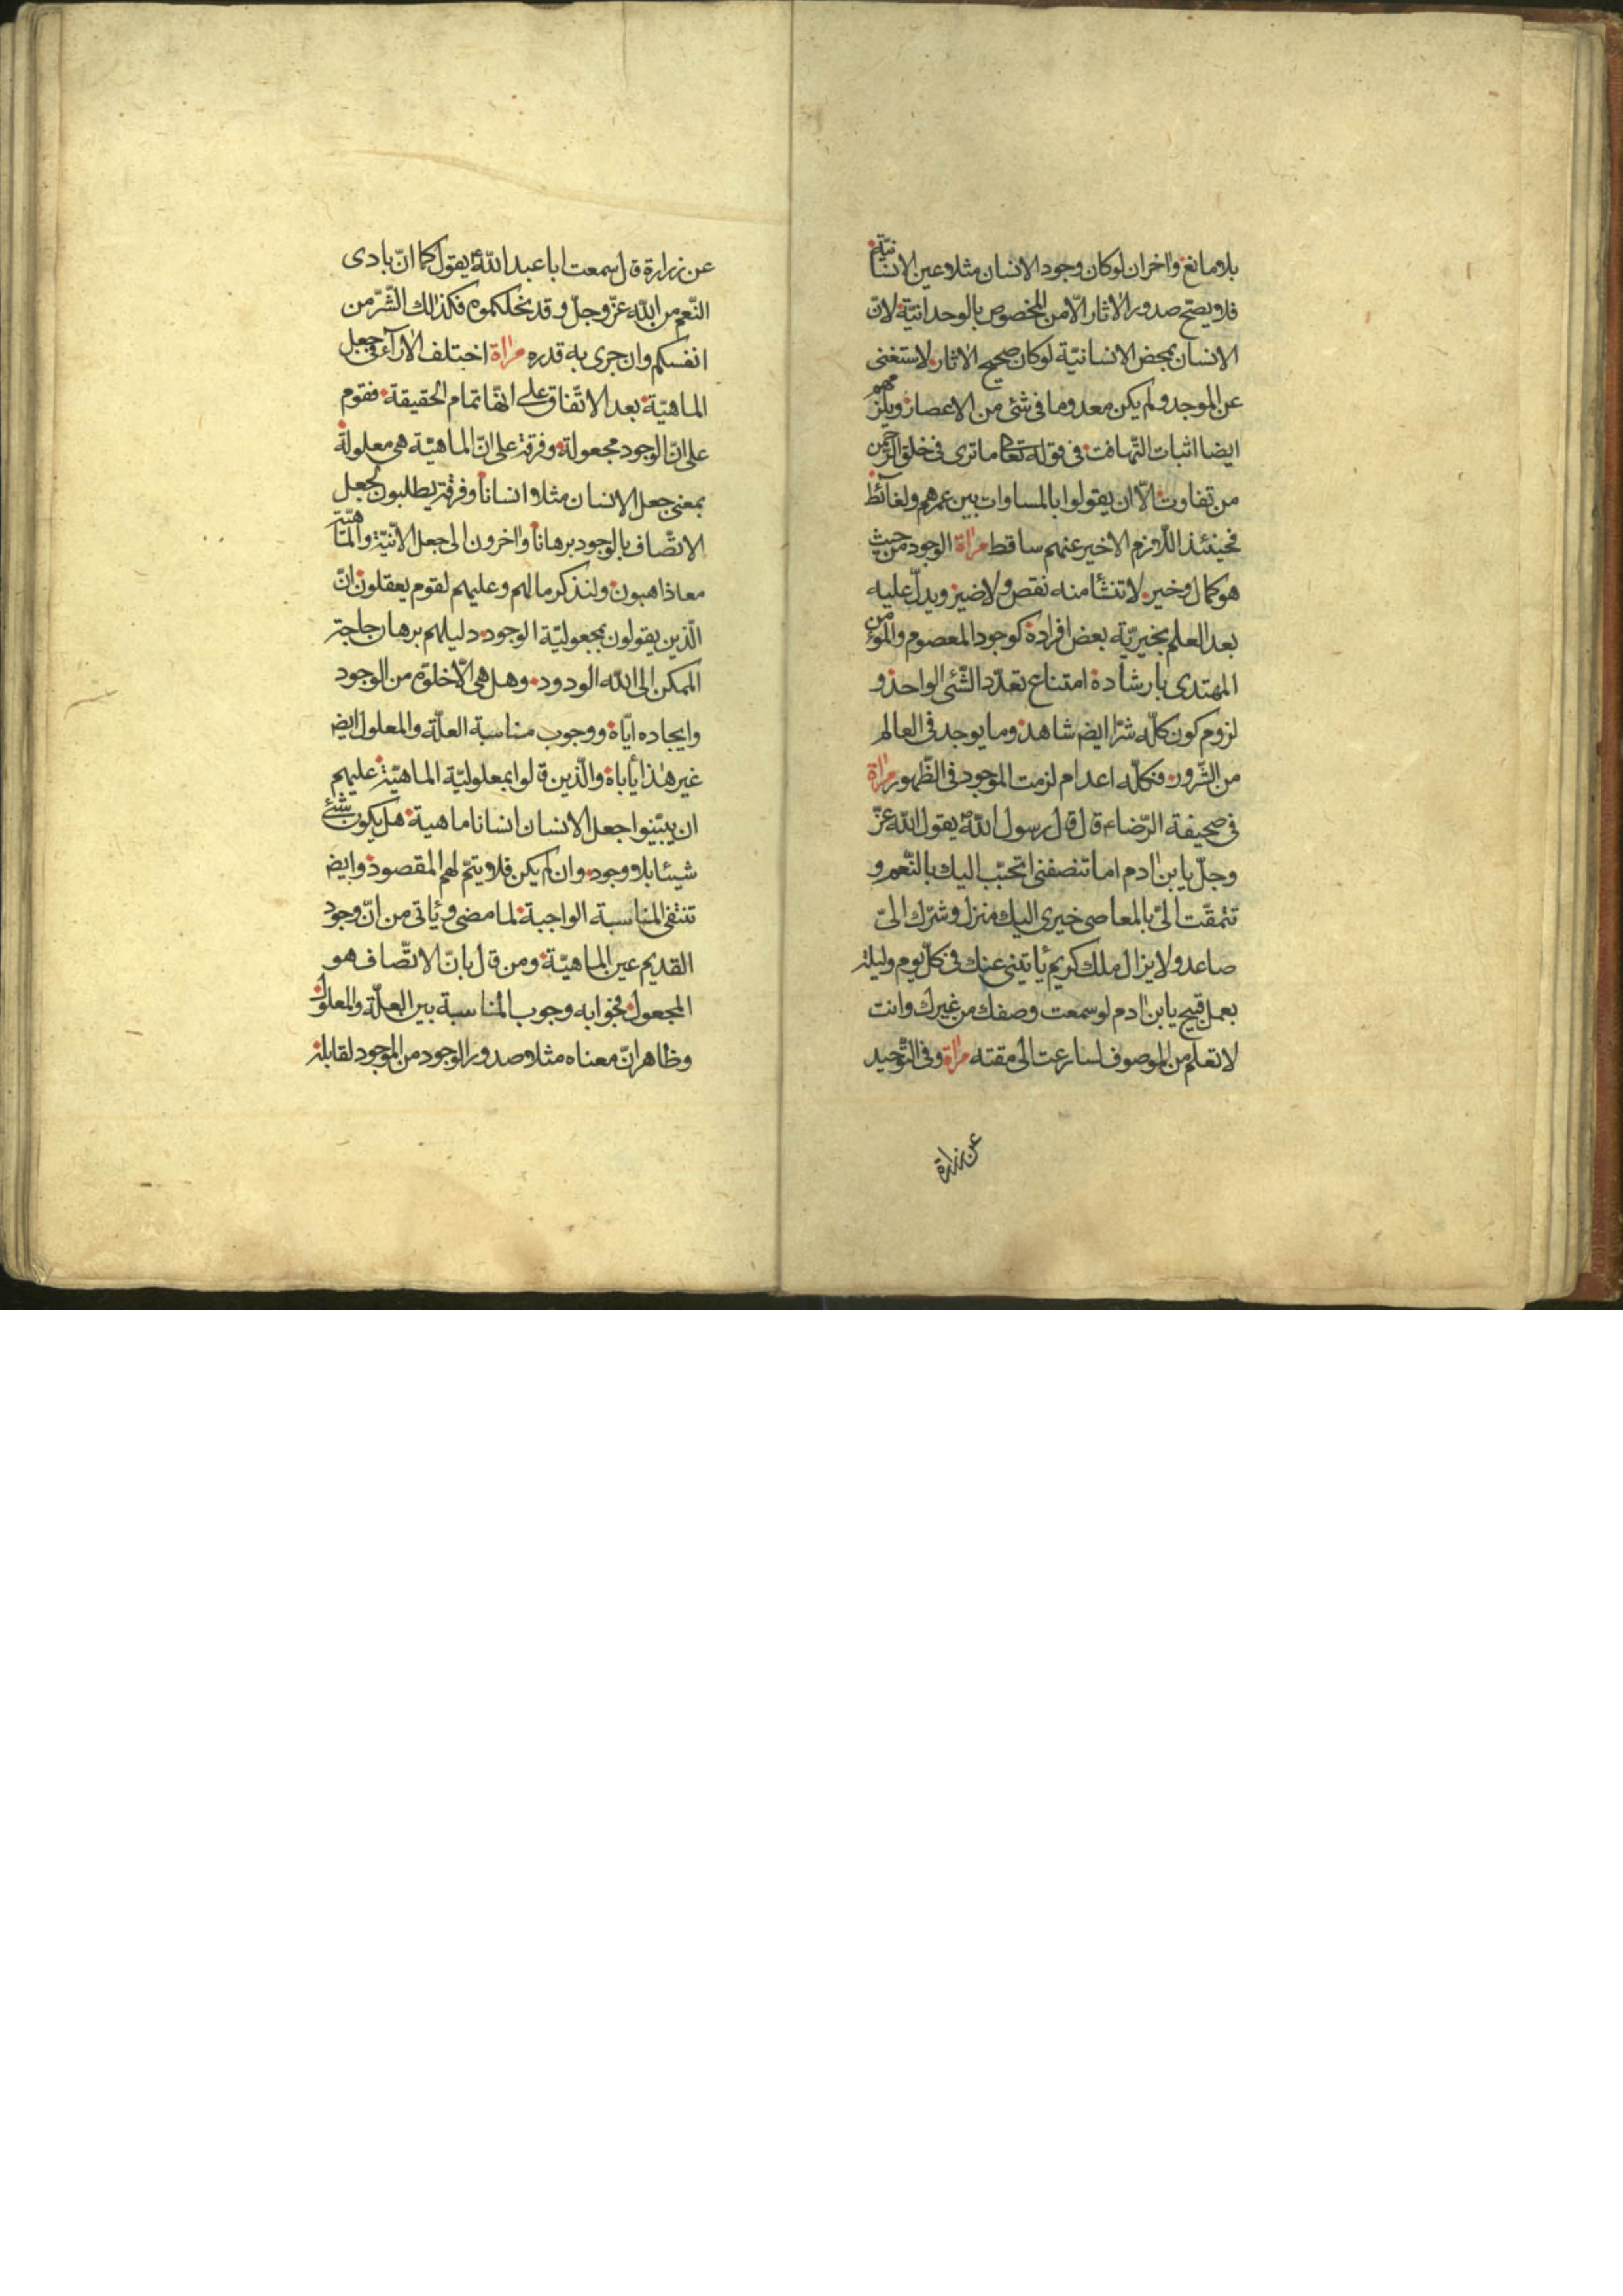 بلا مانع واخر ان لو كان وجود الانسان مثلا عين الانسانيّة
فلا يصحّ صدور الاثار الّا من المخصوص بالوحدانيّة لانّ
الانسان بمحض الانسانيّة لو كان صحيح الاثار لاستغنى
عن الموجد ولم يكن معدوما فى شئ من الاعصار ويلزمهم
ايضا اثبات التّهافت فى قوله تعا ما ترى فى خلق الرّحمن
من تفاوت الّا ان يقولوا بالمساوات بين عمرهم ولغائط
فحينئذ اللّازم الاخير عنهم ساقط مرٰاة الوجود من حيث
هو كمال وخير لا تنشأ منه نقص ولا ضير ويدلّ عليه
بعد العلم بخيريّة بعض افراده كوجود المعصوم والمؤمن
المهتدى بارشاده امتناع تعدّد الشّئ الواحد و
لزوم كون كلّه شرّا ايض شاهد وما يوجد فى العالم
من الشّرور فكلّه اعدام لزمت الموجود فى الظّهور مرٰاة
فى صحيفة الرّضاء قال قال رسول اللّه يقول اللّه عزّ
وجلّ يا بن اٰدم اما تنصفنى اتحبّب اليك بالنّعم و
تتمقّت الىّ بالمعاصى خيرى اليك منزل وشرّك الىّ
صاعد ولا يزال ملك كريم يأتينى عنك فى كلّ يوم وليلة
بعمل قبيح يا بن اٰدم لو سمعت وصفك من غيرك وانت
لا تعلم من الموصوف لسارعت الى مقته مرٰاة وفى التّوحيد
عن زرارة
عن زرارة قال سمعت ابا عبد اللّه يقول كما انّ بادى
النّعم من اللّه عزّ وجلّ وقد نحلكموه فكذلك الشّرّ من
انفسكم وان جرى به قدره مرٰاة اختلف الاراء فى جعل
الماهيّة بعد الاتّفاق على انّها تمام الحقيقة فقوم
على انّ الوجود مجعولة وفرقة على انّ الماهيّة هى معلولة
بمعنى جعل الانسان مثلا انسانا وفرقة يطلبون لجعل
الاتّصاف بالوجود برهانا واٰخرون الى جعل الانّيّة والماهيّة
معا ذاهبون ولنذكر ما لهم وعليهم لقوم يعقلون انّ
الّذين يقولون بمجعوليّة الوجود دليلهم برهان حاجة
الممكن الى اللّه الودود وهل هى الّا خلقه من الوجود
وايجاده ايّاه ووجوب مناسبة العلّة والمعلول ايض
غير هذا يأباه والّذين قالوا بمعلوليّة الماهيّة عليهم
ان يبيّنوا جعل الانسان انسانا ما هية هل يكون شئ
شيئا بلا وجود وان لم يكن فلا يتمّ لهم المقصود وايض
تنتفى المناسبة الواجبة لما مضى ويأتى من انّ وجود
القديم عين الماهيّة ومن قال بانّ الاتّصاف هو
المجعول فجوابه وجوب المناسبة بين العلّة والمعلول
وظاهر انّ معناه مثلا صدور الوجود من الموجود لقابله